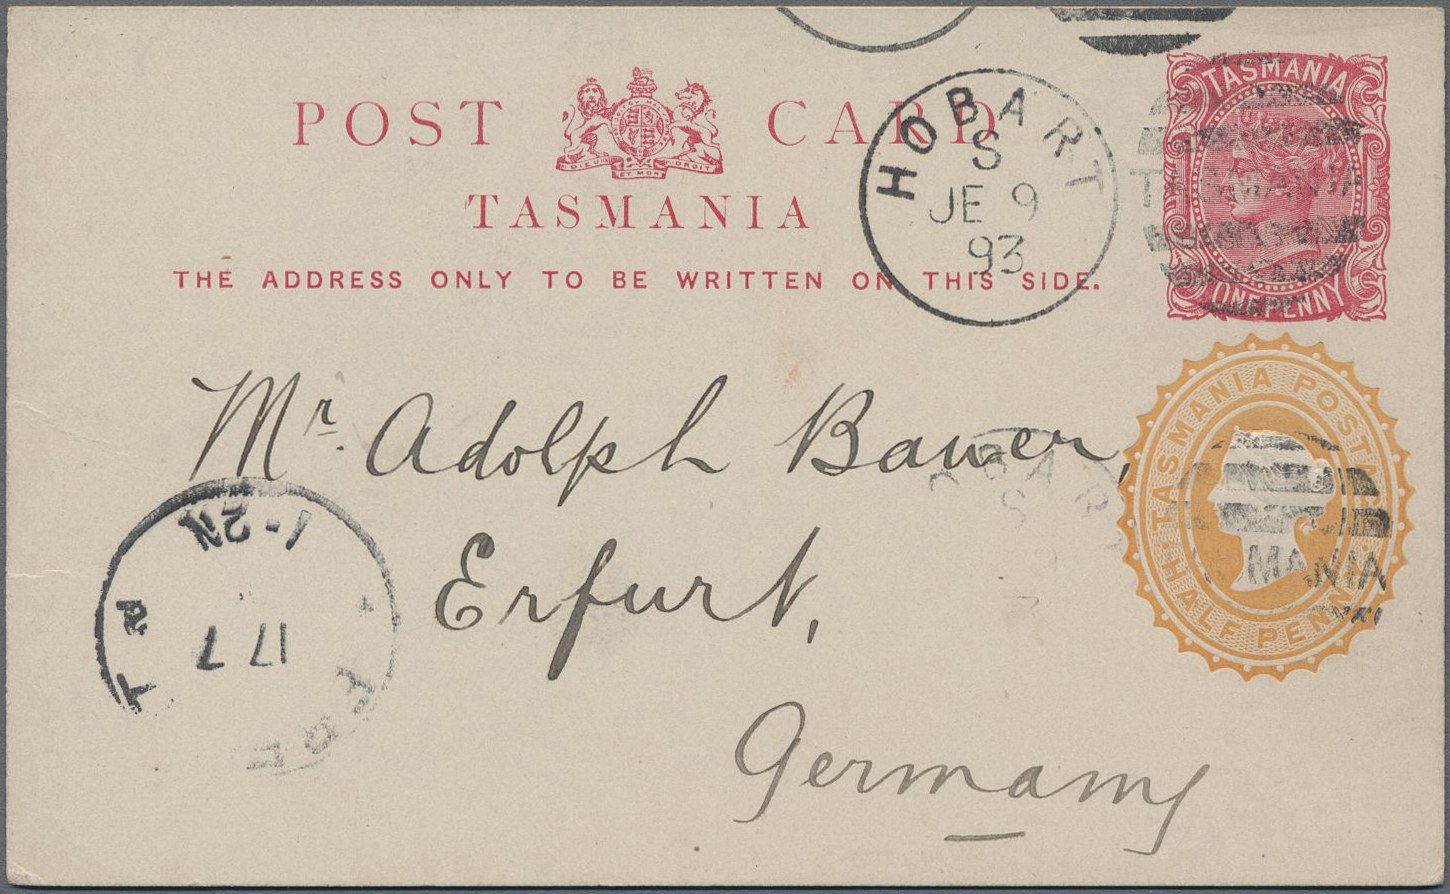 POST CARD
DIEU ET MON DROIT
TASMANIA
THE ADDRESS ONLY TO BE WRITTEN ON THIS SIDE.
HOBART
S
JE 9
93
TASMANIA
ONE PENNY
TASMANIA POSTAGE
HALF PENNY
MANIA
OBART
S
Mr. Adolph Bauer,
Erfurt,
Germany
1-2N
17 7